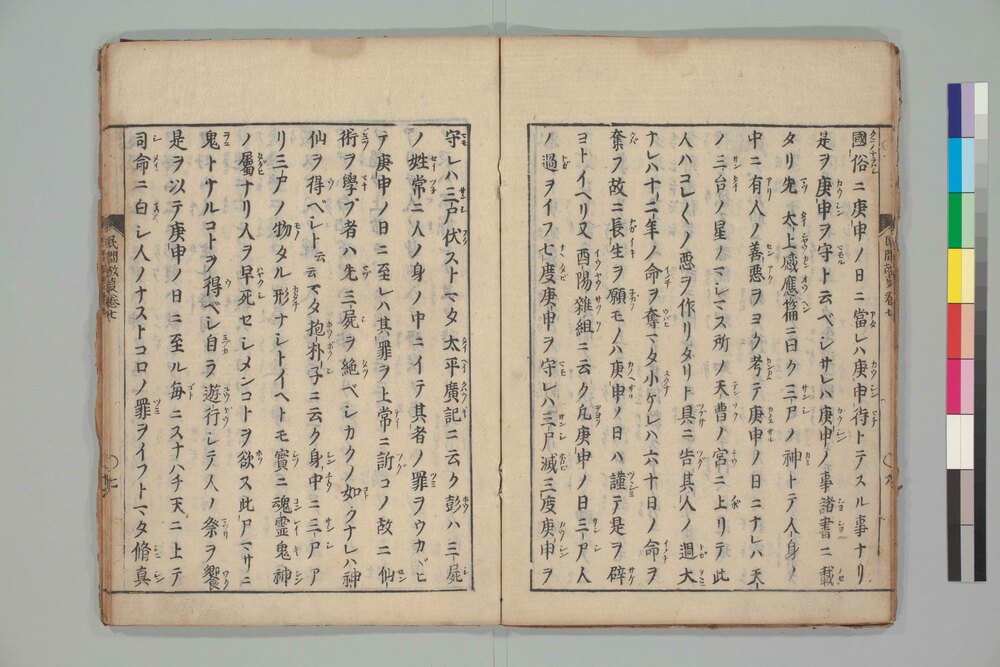 國俗ニ庚申ノ日ニ當レハ庚申待トテスル事ナリ
是ヲ庚申ヲ守ト云ベシサレハ庚申ノ事諸書ニ載
タリ先太上感應篇ニ曰ク三尸ノ神トテ人ノ身ノ
中ニ有人ノ善悪ヲヨク考テ庚申ノ日ニナレハ天
ノ三台ノ星ノマシマス所ノ天曹ノ宮ニ上リテ此
人ハコレ〱ノ悪ヲ作リタリト具ニ告其人ノ過大
ナレハ十二年ノ命ヲ奪マタ小ケレハ六十日ノ命ヲ
奪フ故ニ長生ヲ願モノハ庚申ノ日ハ謹テ是ヲ辟
ヨトイヘリ又酉陽雜組ニ云ク凡庚申ノ日三尸人
ノ過ヲイフ七度庚申ヲ守レハ三尸滅三度庚申ヲ
守レハ三尸伏ストマタ太平廣記ニ云ク彭ハ三屍
ノ姓常ニ人ノ身ノ中ニイテ其者ノ罪ヲウカヾヒ
テ庚申ノ日ニ至レハ其罪ヲ上帝ニ訴コノ故ニ仙
術ヲ學ブ者ハ先三屍ヲ絶ベシカクノ如クナレハ神
仙ヲ得ベシト云云マタ抱朴子ニ云ク身中ニ三尸ア
リ三尸ノ物タル形ナシトイヘトモ實ニ魂霊鬼神
ノ屬ナリ人ヲ早死セシメンコトヲ欲ス此尸マサニ
鬼トナルコトヲ得ベシ自ラ遊行シテ人ノ祭ヲ饗
是ヲ以テ庚申ノ日ニ至ル毎ニスナハチ天ニ上テ
司命ニ白シ人ノナストコロノ罪ヲイフトマタ脩真
民間歳夏卷七